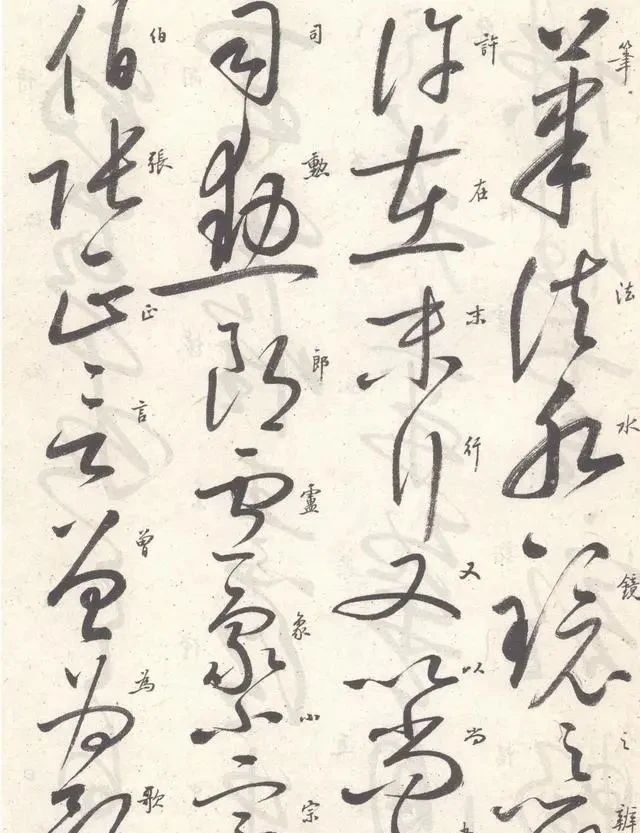 筆法水鏡之辨
許在末行又以尚
司勳郎盧象小宗
伯張正言曾為歌